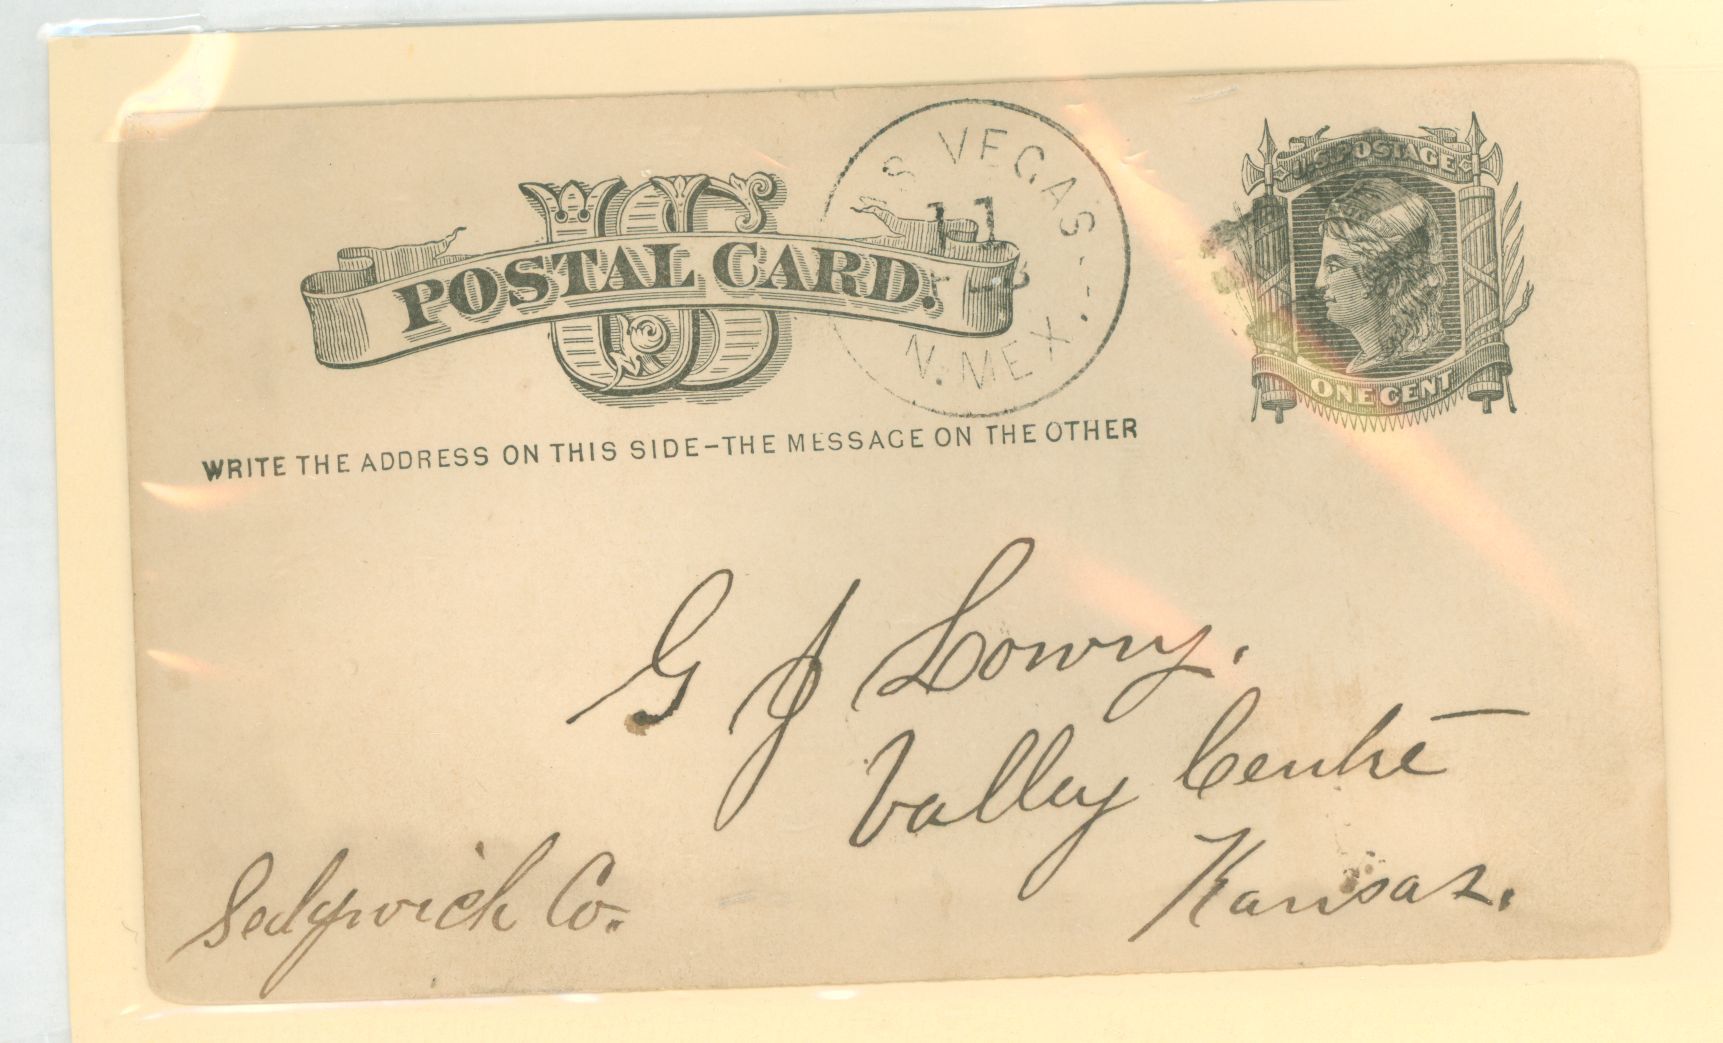 US
POSTAL CARD.
LAS VEGAS
11
N. MEX
U.S. POSTAGE
ONE CENT
WRITE THE ADDRESS ON THIS SIDE–THE MESSAGE ON THE OTHER
G J Lowry.
Valley Centre
Kansas.
Sedgwick Co.